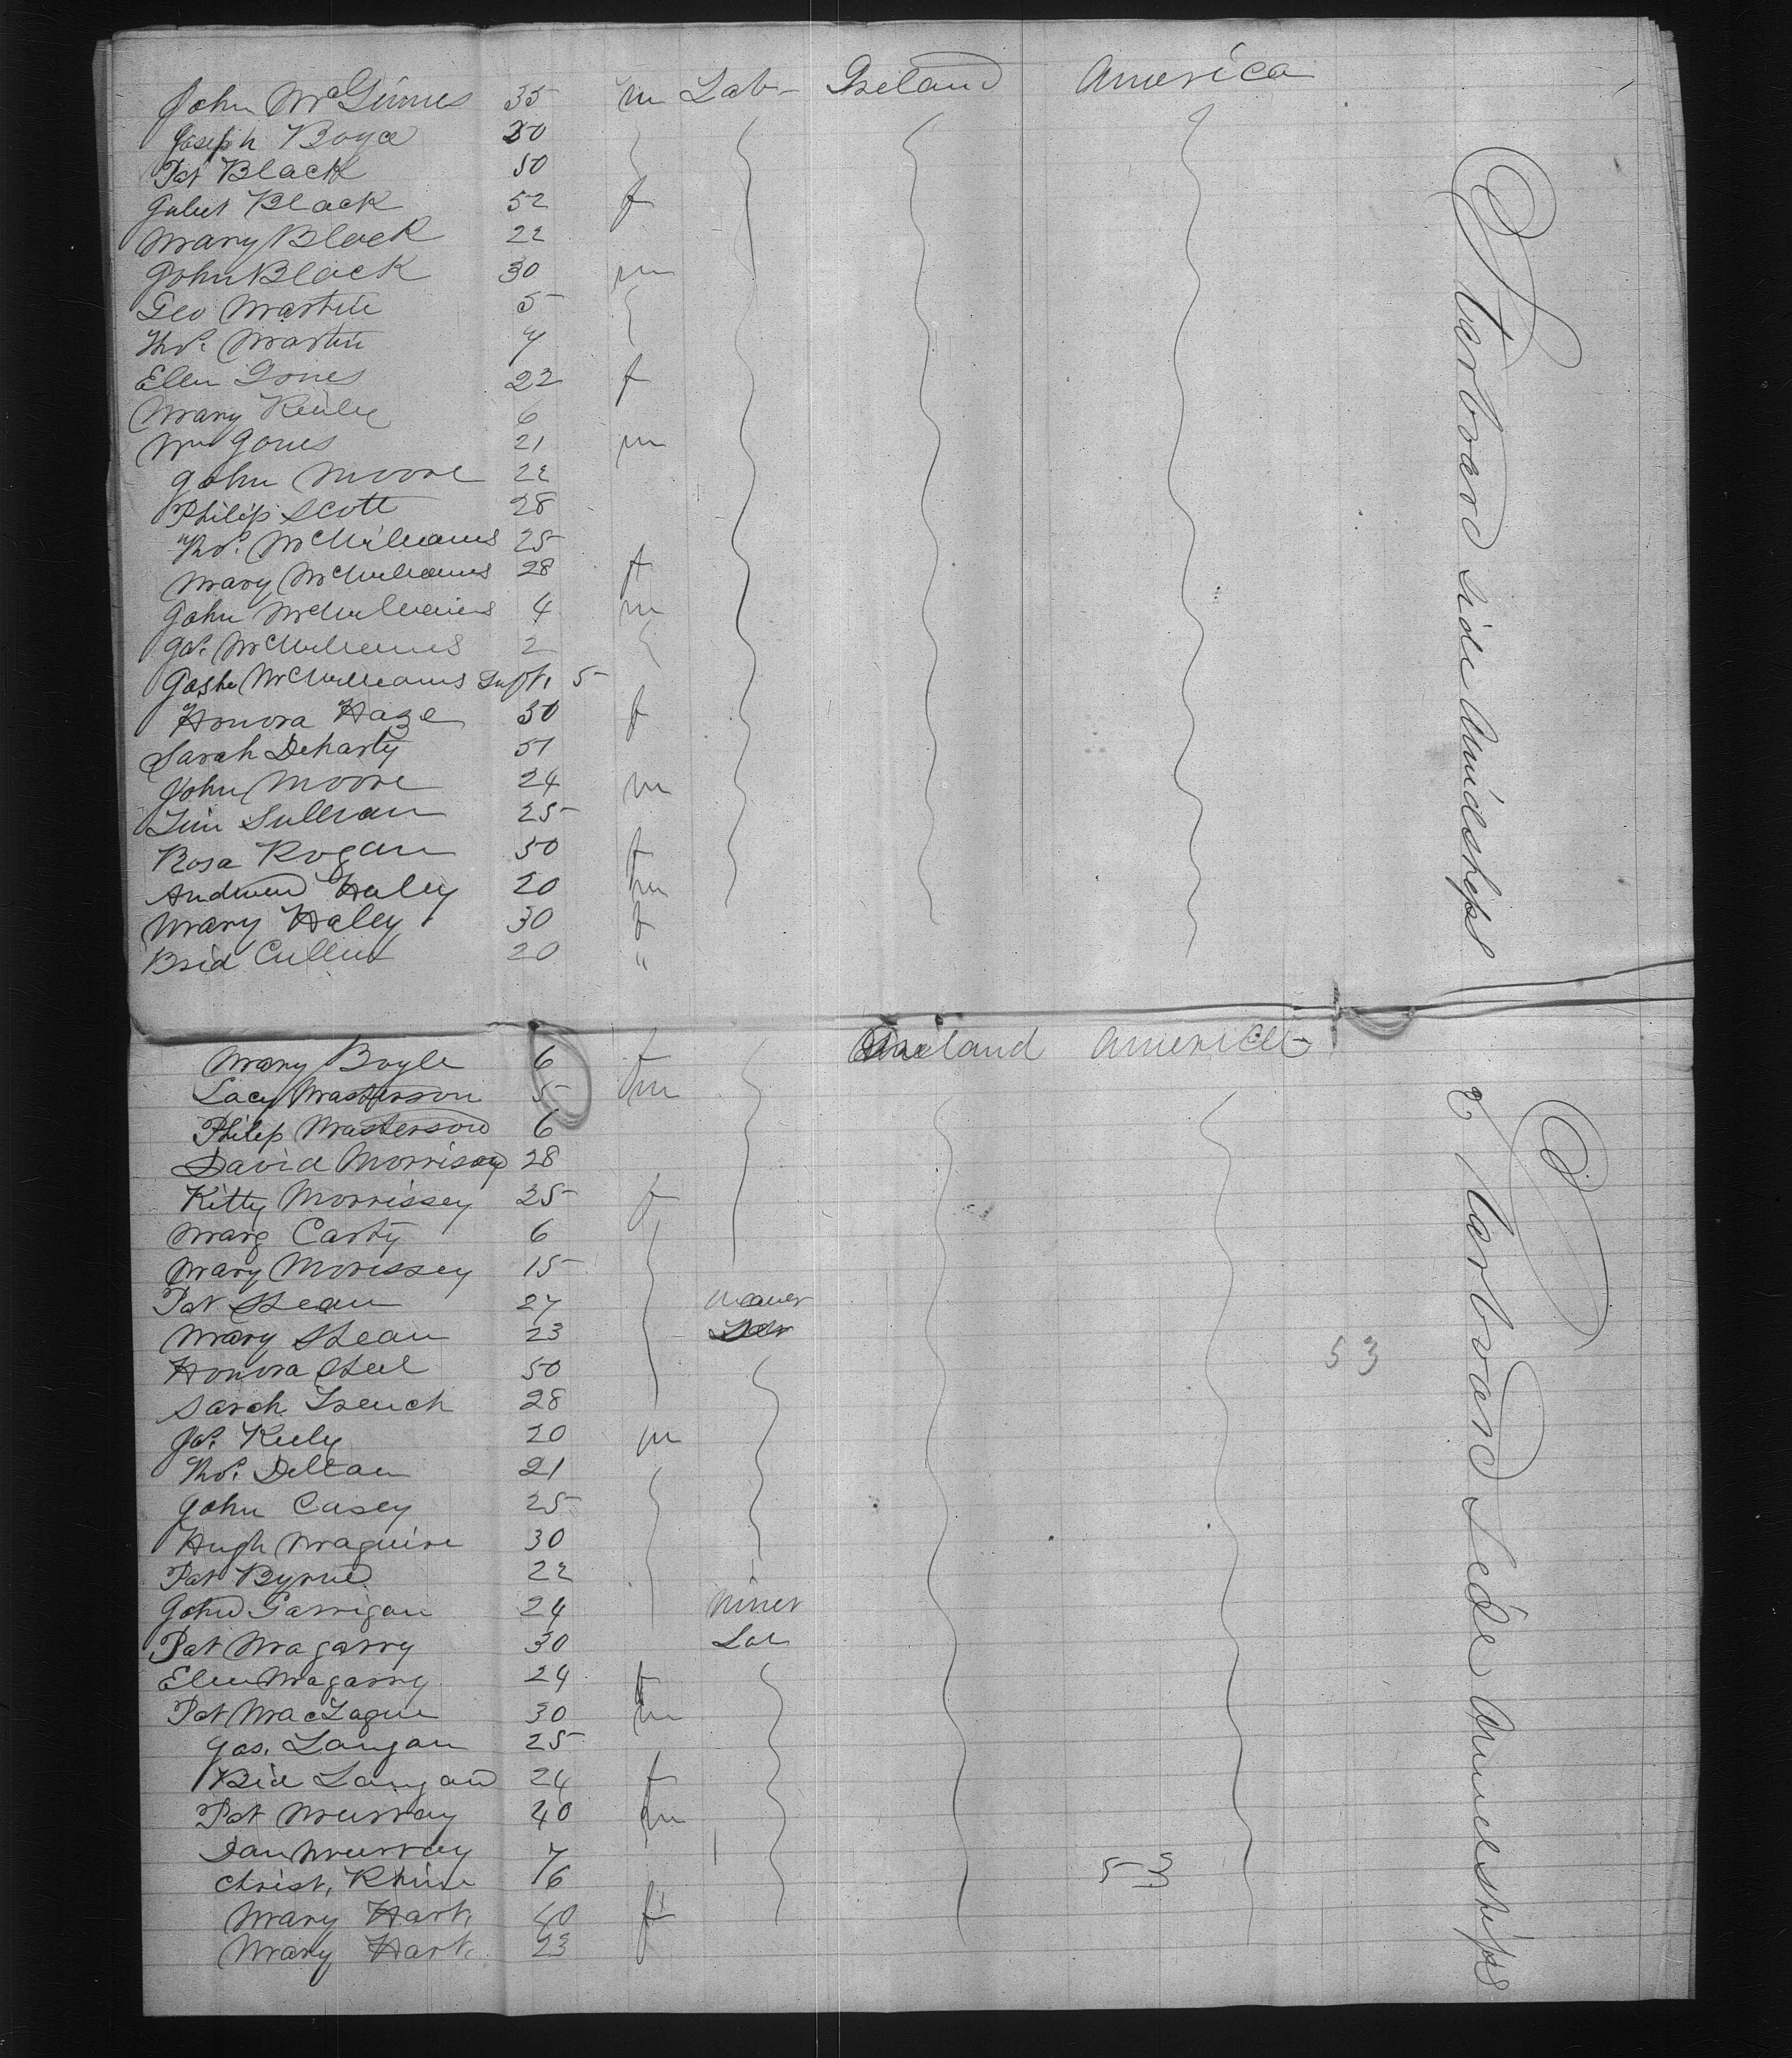 John McGinnes 35 m Lab- Ireland America
Joseph Boyce 30
Pat Black 50
Juliet Black 52 f
Mary Black 22
John Black 30 m
Geo Martin 5
Thos. Martin 7
Ellen Jones 22 f
Mary 6
Wm Jones 21 m
John Moore 22
Philip Scott 28
Thos. McWilliams 25
Mary McWilliams 28 f
John McWilliams 4 m
Jas. McWilliams 2
McWilliams Inft. 5
Honora Haze 30 f
Sarah Deharty 51
John Moore 24 m
Tim Sullivan 25
Rosa Rogan 50 f
Andrew Haley 20 m
Mary Haley 30 f
Brid Cullen 20 "
Starboard side Amidships
Mary Boyle 6 f Ireland America
Lacy Masterson 5 m
Philip Masterson 6
David Morrissey 28
Kitty Morrissey 25 f
Marg Carty 6
Mary Morissey 15
Pat Shean 27
Mary Shean 23
53
Honora Steel 50
Sarah French 28
Jas. Keely 20 m
Thos. Dillan 21
John Casey 25
Hugh Maguire 30
Pat Byrne 22
John Garrigan 24 miner
Pat Magarry 30 Lab
Ellen Magarry 24 f
Pat MacTague 30 m
Jas. Langan 25
Bid Langan 24 f
Pat Murray 40 m
Dan Murray 7
Christ. 16
53
Mary Hart. 40 f
Mary Hart. 23
Starboard Side Amidships